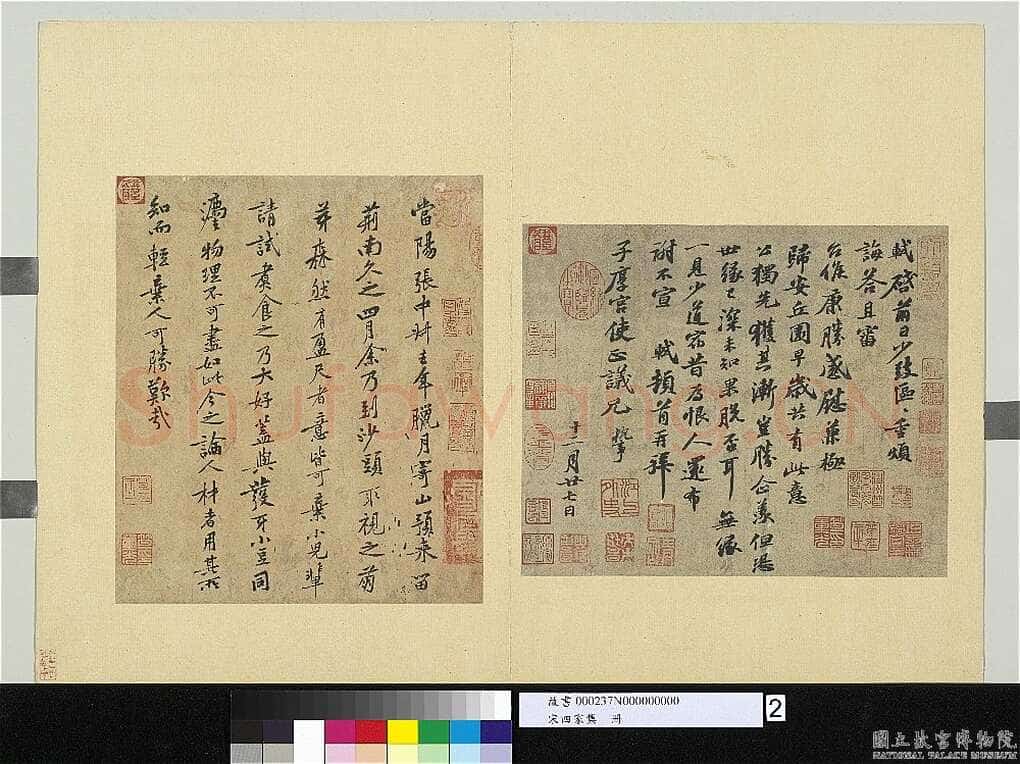 軾啓前日少致區區重煩
誨荅且審
台候康勝感慰兼極
歸安丘園早歲共有此意
公獨先獲其漸豈勝企羨但恐
世緣已深未知果脫否耳 無緣
一見少道宿昔為恨人還布
謝不宣 軾頓首再拜
子厚宮使正議兄 執事
十二月廿七日
當陽張中叔去年臘月寄山預來留
荊南久之四月余乃到沙頭取視之萌
芽森然有盈尺者意皆可棄小兒輩
請試煮食之乃大好蓋與發牙小豆同
灋物理不可盡如此今之論人材者用其所
知而輕棄人可勝歎哉
Shufawang.CN
故書000237N000000000
宋四家集 冊
2
國立故宮博物院
NATIONAL PALACE MUSEUM